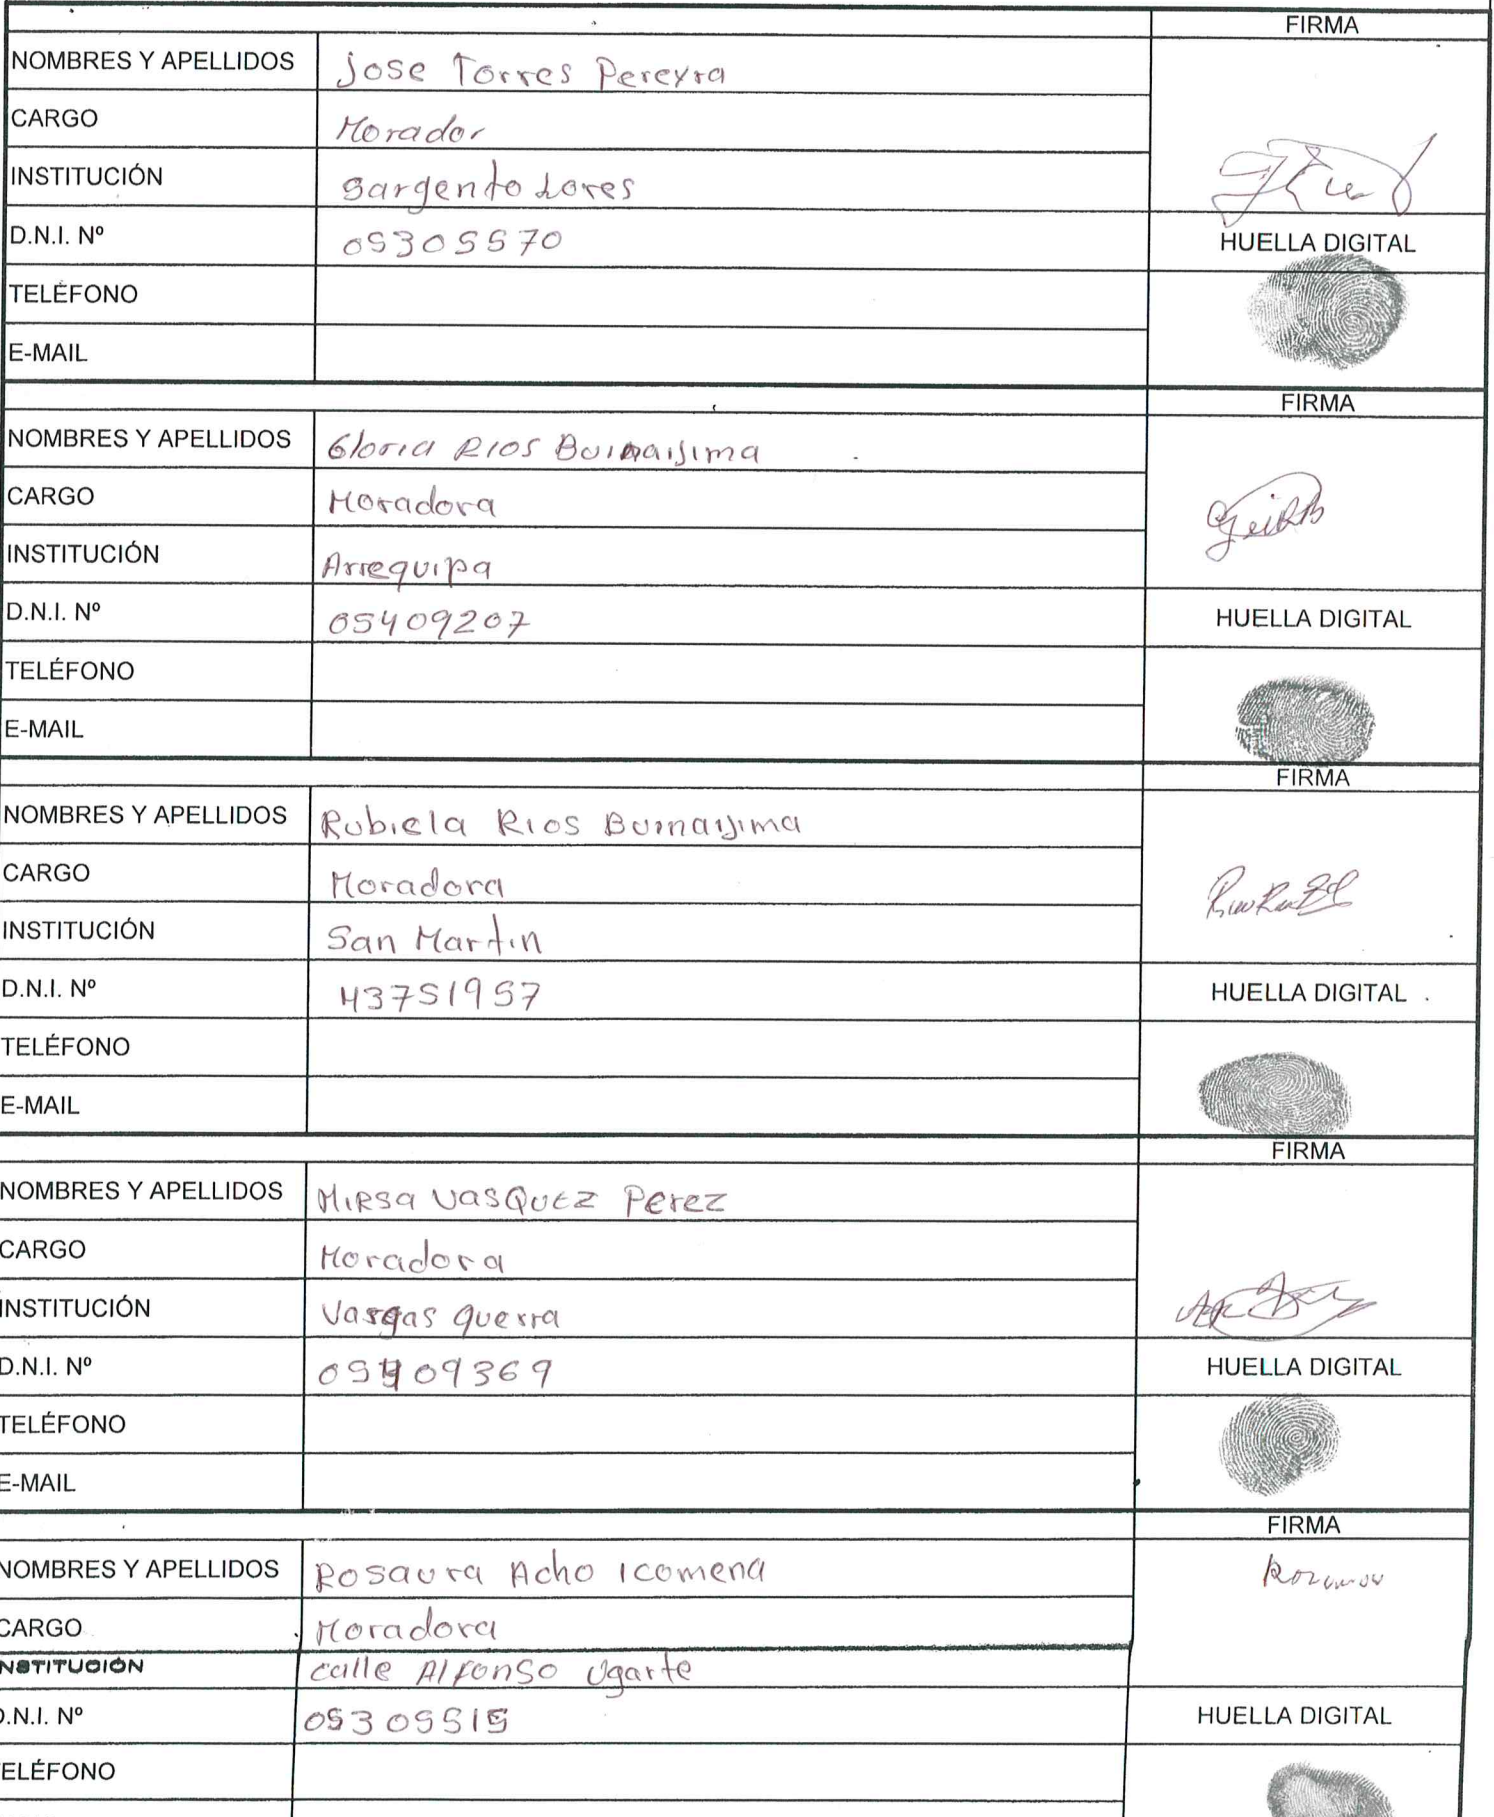 FIRMA
NOMBRES Y APELLIDOS Jose Torres Pereyra
CARGO Morador
INSTITUCIÓN Sargento Lores
D.N.I. Nº 05305570
HUELLA DIGITAL
TELÉFONO
E-MAIL
FIRMA
NOMBRES Y APELLIDOS Gloria RIOS
CARGO Moradora
INSTITUCIÓN Arrequipa
D.N.I. Nº 05409207
HUELLA DIGITAL
TELÉFONO
E-MAIL
FIRMA
NOMBRES Y APELLIDOS Rubiela RIOS
CARGO Moradora
INSTITUCIÓN San Martin
D.N.I. Nº 43751957
HUELLA DIGITAL
TELÉFONO
E-MAIL
FIRMA
NOMBRES Y APELLIDOS MIRSA VASQUEZ Perez
CARGO Moradora
INSTITUCIÓN Vargas querra
D.N.I. Nº 05409369
HUELLA DIGITAL
TELÉFONO
E-MAIL
FIRMA
NOMBRES Y APELLIDOS Rosaura Acho Icomena
CARGO Moradora
INSTITUCIÓN calle Alfonso Ugarte
D.N.I. Nº 05305515
HUELLA DIGITAL
TELÉFONO